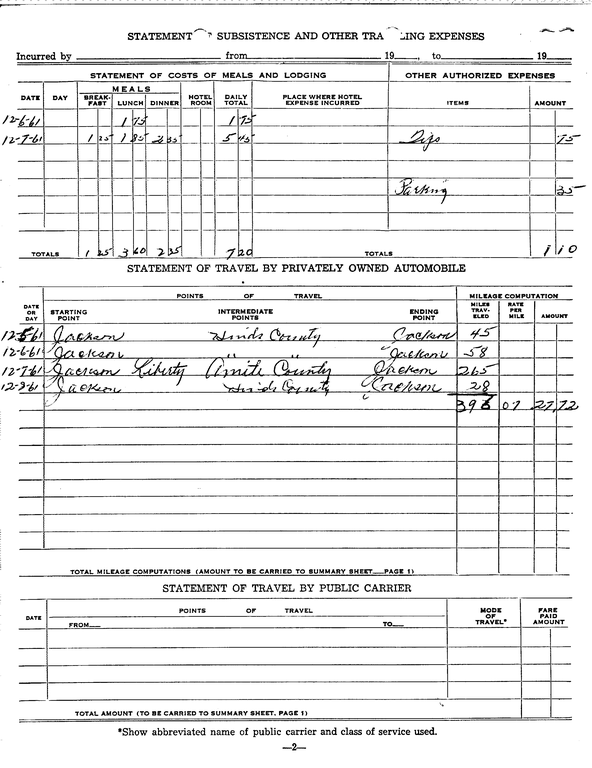 STATEMENT SUBSISTENCE AND OTHER TRA LING EXPENSES
Incurred by from 19 , to 19
STATEMENT OF COSTS OF MEALS AND LODGING OTHER AUTHORIZED EXPENSES
DATE DAY MEALS BREAK-FAST LUNCH DINNER HOTEL ROOM DAILY TOTAL PLACE WHERE HOTEL EXPENSE INCURRED ITEMS AMOUNT
12-6-61 1 75 1 75
12-7-61 1 25 1 85 2 35 5 45 Tips 75
Parking 35
TOTALS 1 25 3 60 2 35 7 20 TOTALS 1 10
STATEMENT OF TRAVEL BY PRIVATELY OWNED AUTOMOBILE
POINTS OF TRAVEL MILEAGE COMPUTATION
DATE OR DAY STARTING POINT INTERMEDIATE POINTS ENDING POINT MILES TRAV-ELED RATE PER MILE AMOUNT
12-5-61 Jackson Hinds County Jackson 45
12-6-61 Jackson " " Jackson 58
12-7-61 Jackson Liberty Amite County Jackson 265
12-8-61 Jackson Hinds County Jackson 28
396 07 27.72
TOTAL MILEAGE COMPUTATIONS (AMOUNT TO BE CARRIED TO SUMMARY SHEET PAGE 1)
STATEMENT OF TRAVEL BY PUBLIC CARRIER
DATE POINTS OF TRAVEL MODE OF TRAVEL* FARE PAID AMOUNT
FROM TO
TOTAL AMOUNT (TO BE CARRIED TO SUMMARY SHEET, PAGE 1)
*Show abbreviated name of public carrier and class of service used.
—2—